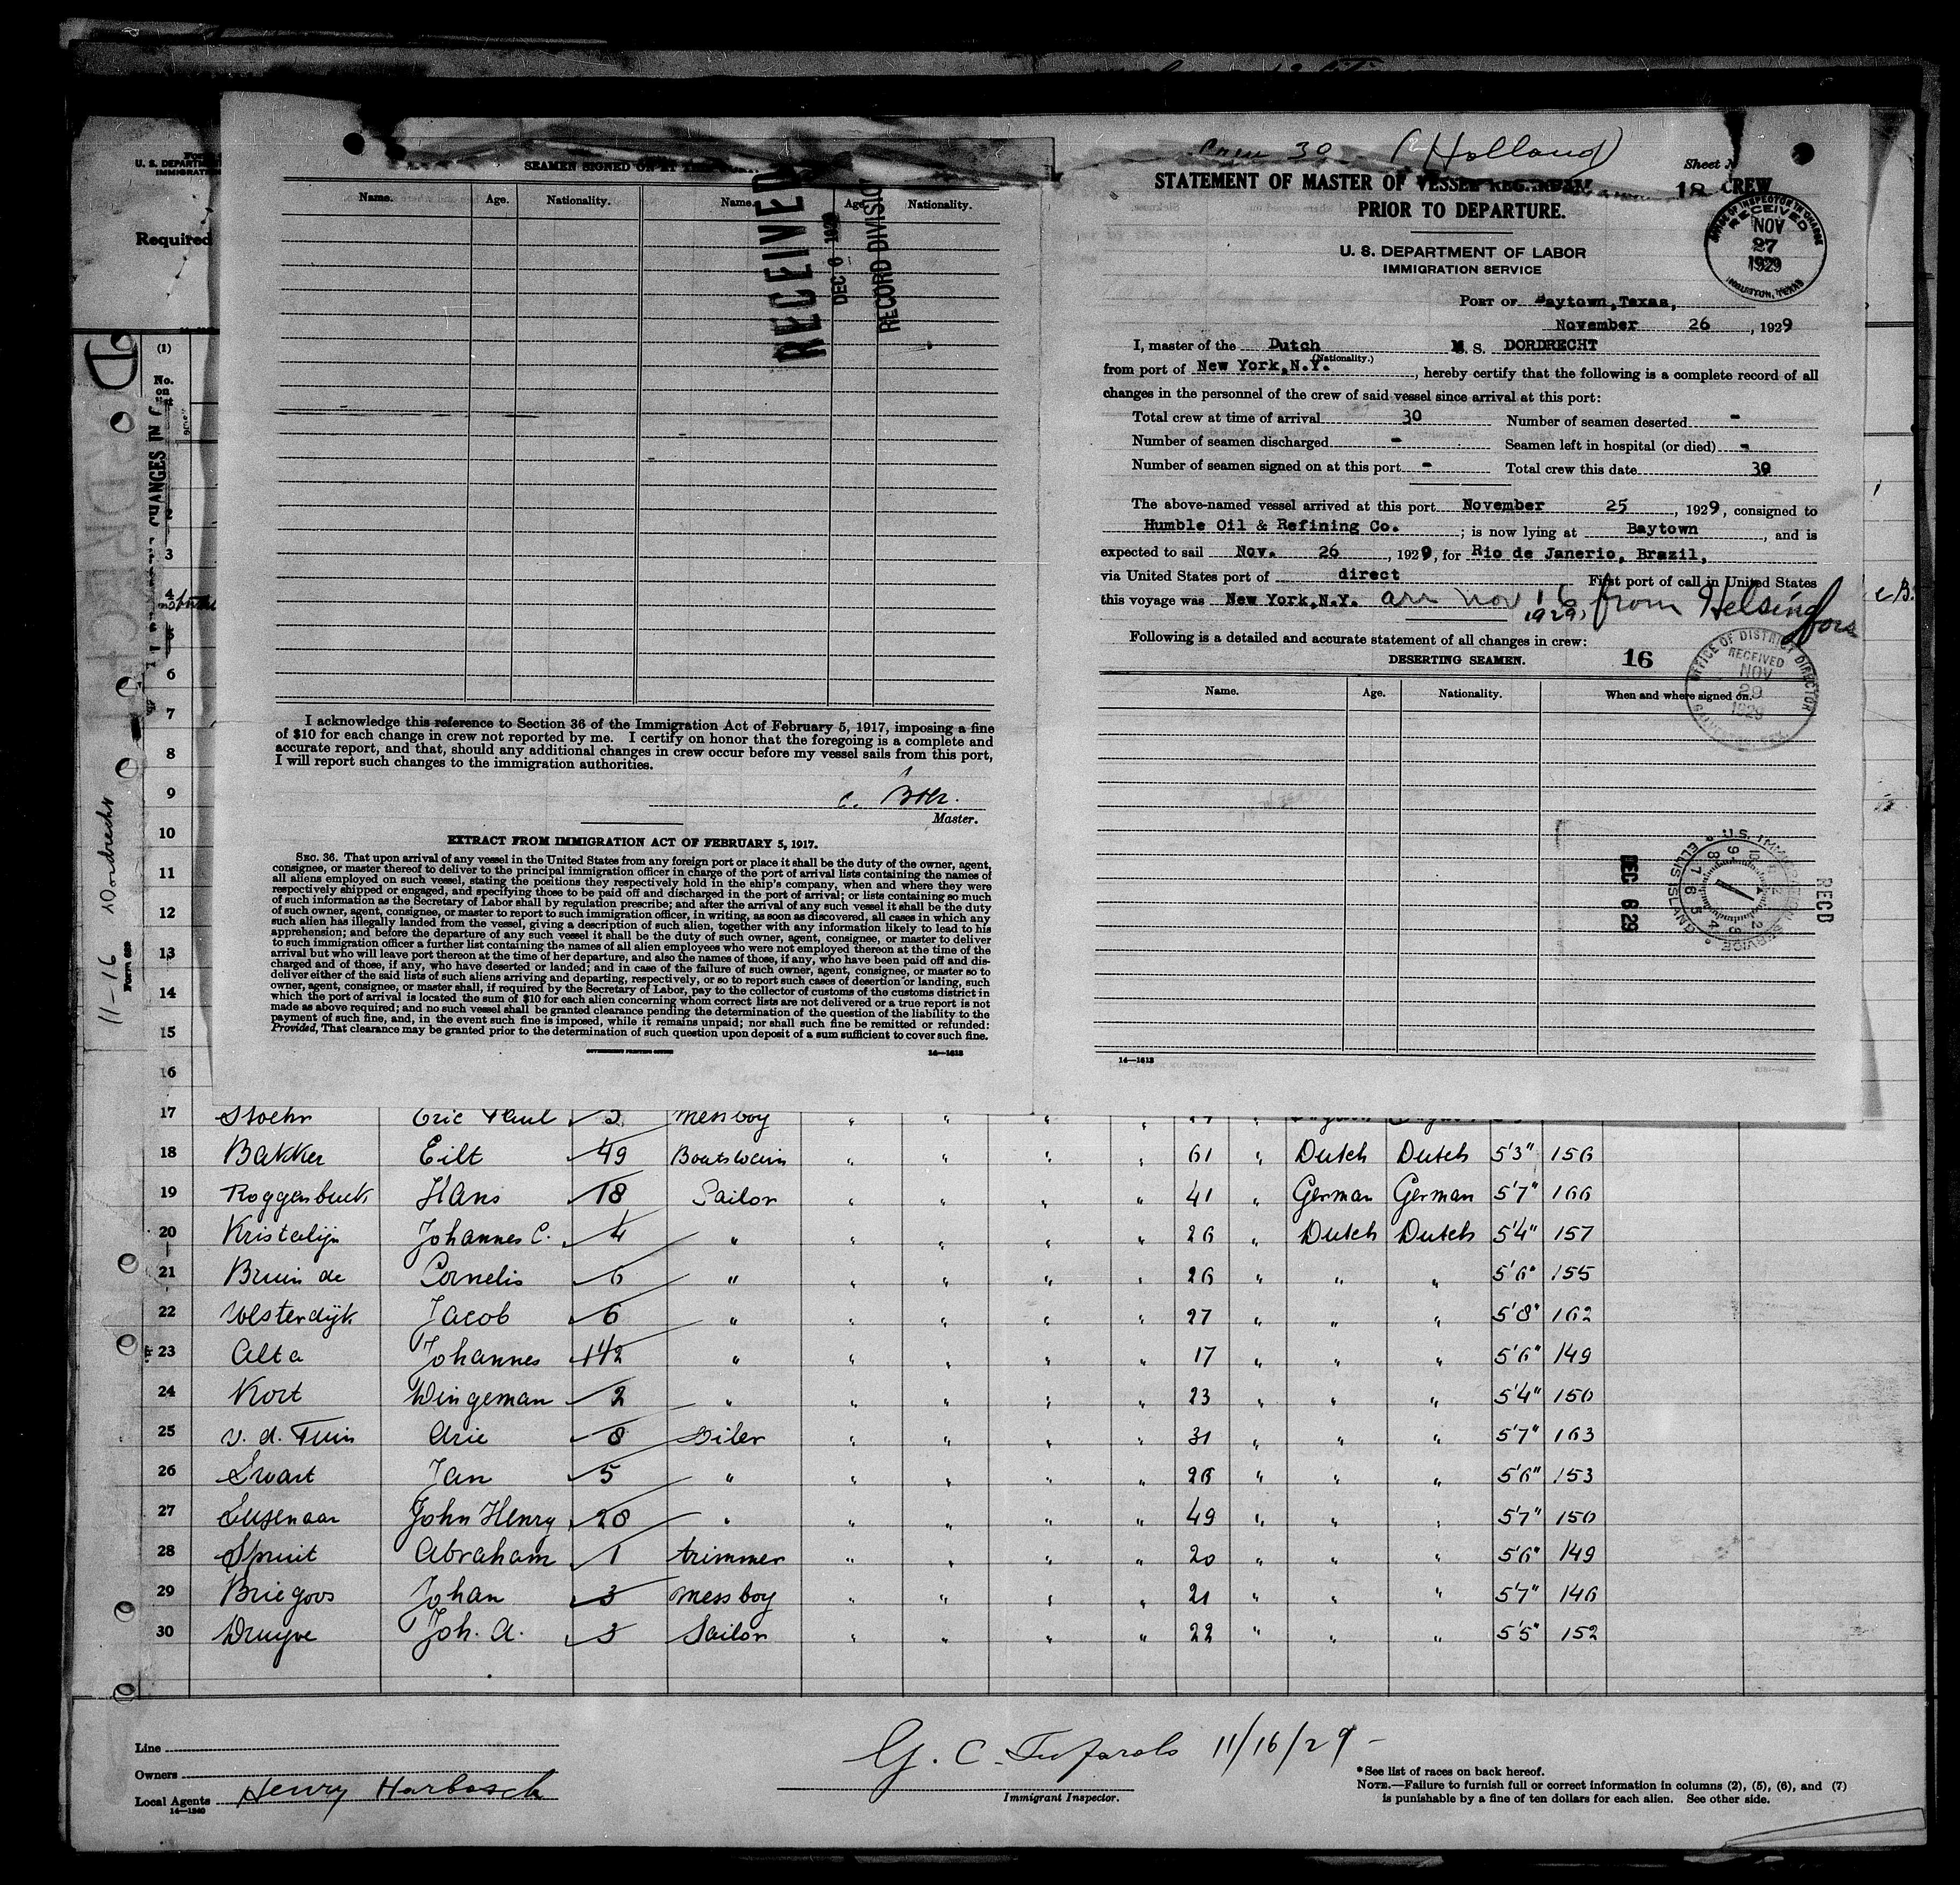 SEAMEN SIGNED ON AT
Name. Age. Nationality. Name. Age. Nationality.
RECEIVED
DEC 6 1929
RECORD DIVISION
I acknowledge this reference to Section 36 of the Immigration Act of February 5, 1917, imposing a fine
of $10 for each change in crew not reported by me. I certify on honor that the foregoing is a complete and
accurate report, and that, should any additional changes in crew occur before my vessel sails from this port,
I will report such changes to the immigration authorities.
Master.
EXTRACT FROM IMMIGRATION ACT OF FEBRUARY 5, 1917.
SEC. 36. That upon arrival of any vessel in the United States from any foreign port or place it shall be the duty of the owner, agent,
consignee, or master thereof to deliver to the principal immigration officer in charge of the port of arrival lists containing the names of
all aliens employed on such vessel, stating the positions they respectively hold in the ship's company, when and where they were
respectively shipped or engaged, and specifying those to be paid off and discharged in the port of arrival; or lists containing so much
of such information as the Secretary of Labor shall by regulation prescribe; and after the arrival of any such vessel it shall be the duty
of such owner, agent, consignee, or master to report to such immigration officer, in writing, as soon as discovered, all cases in which any
such alien has illegally landed from the vessel, giving a description of such alien, together with any information likely to lead to his
apprehension; and before the departure of any such vessel it shall be the duty of such owner, agent, consignee, or master to deliver
to such immigration officer a further list containing the names of all alien employees who were not employed thereon at the time of the
arrival but who will leave port thereon at the time of her departure, and also the names of those, if any, who have been paid off and dis-
charged and of those, if any, who have deserted or landed; and in case of the failure of such owner, agent, consignee, or master so to
deliver either of the said lists of such aliens arriving and departing, respectively, or so to report such cases of desertion or landing, such
owner, agent, consignee, or master shall, if required by the Secretary of Labor, pay to the collector of customs of the customs district in
which the port of arrival is located the sum of $10 for each alien concerning whom correct lists are not delivered or a true report is not
made as above required; and no such vessel shall be granted clearance pending the determination of the question of the liability to the
payment of such fine, and, in the event such fine is imposed, while it remains unpaid; nor shall such fine be remitted or refunded:
Provided, That clearance may be granted prior to the determination of such question upon deposit of a sum sufficient to cover such fine.
GOVERNMENT PRINTING OFFICE 14—1613
Crew 30 (Holland)
Sheet
STATEMENT OF MASTER OF VESSEL REGARDING 18 CREW
PRIOR TO DEPARTURE.
U. S. DEPARTMENT OF LABOR
IMMIGRATION SERVICE
OFFICE OF INSPECTOR IN CHARGE
RECEIVED
NOV
27
1929
HOUSTON, TEXAS
PORT OF Baytown, Texas,
November 26, 1929
I, master of the Dutch M. S. DORDRECHT
(Nationality.)
from port of New York, N.Y., hereby certify that the following is a complete record of all
changes in the personnel of the crew of said vessel since arrival at this port:
Total crew at time of arrival 30 Number of seamen deserted -
Number of seamen discharged - Seamen left in hospital (or died) -
Number of seamen signed on at this port - Total crew this date 30
The above-named vessel arrived at this port November 25, 1929, consigned to
Humble Oil & Refining Co.; is now lying at Baytown, and is
expected to sail Nov. 26, 1929, for Rio de Janerio, Brazil,
via United States port of direct First port of call in United States
this voyage was New York, N.Y. arr nov 16 1929, from Helsingfors
Following is a detailed and accurate statement of all changes in crew:
DESERTING SEAMEN. 16
OFFICE OF DISTRICT DIRECTOR
RECEIVED
NOV
29
1929
Name. Age. Nationality. When and where signed on.
U.S. IMMIGRATION SERVICE ELLIS ISLAND
DEC 6 29
REC'D
14—1613
U. S. DEPARTM
IMMIGRATIO
Required
(1)
No.
on
list
CHANGES IN
DORDRECHT
11-16 Dordrecht
3
4
5
6
7
8
9
10
11
12
13
14
15
16
17 Stoehr Eric Paul 3 Messboy
18 Bakker Eilt 49 Boatswain " " " " 61 " Dutch Dutch 5'3" 156
19 Roggenbuck Hans 18 Sailor " " " " 41 " German German 5'7" 166
20 Kristalijn Johannes C. 4 " " " " " 26 " Dutch Dutch 5'4" 157
21 Bruin de Cornelis 6 " " " " " 26 " " " 5'6" 155
22 Westerdijk Jacob 6 " " " " " 27 " " " 5'8" 162
23 Alta Johannes 1½ " " " " " 17 " " " 5'6" 149
24 Kort Wingeman 2 " " " " " 23 " " " 5'4" 150
25 v. d. Tuin Arie 8 Oiler " " " " 31 " " " 5'7" 163
26 Swart Jan 5 " " " " " 26 " " " 5'6" 153
27 Eusenaar John Henry 28 " " " " " 49 " " " 5'7" 150
28 Spruit Abraham 1 trimmer " " " " 20 " " " 5'6" 149
29 Briegoos Johan 3 Messboy " " " " 21 " " " 5'7" 146
30 Druyve Joh. A. 3 Sailor " " " " 22 " " " 5'5" 152
Line
Owners
Local Agents Henry Harbosch
14—1240
G. C. 11/16/29
Immigrant Inspector.
*See list of races on back hereof.
NOTE.—Failure to furnish full or correct information in columns (2), (5), (6), and (7)
is punishable by a fine of ten dollars for each alien. See other side.